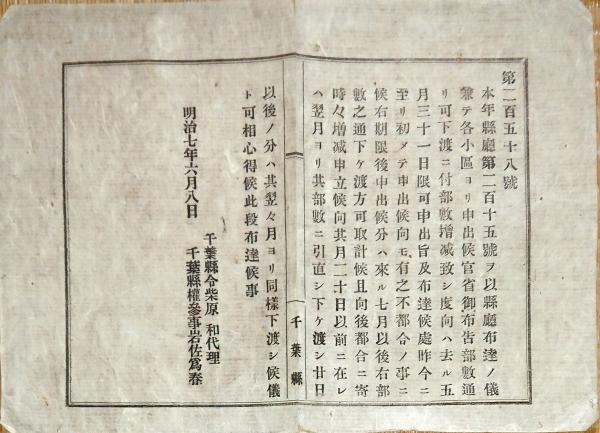 第二百五十八號
本年縣廳第二百十五號ヲ以縣廳布達ノ儀
兼テ各小區ヨリ申出候官省御布告部數通
リ可下渡ニ付部數増减致シ度向ハ去ル五
月三十一日限可申出旨及布達候處昨今ニ
至リ初メテ申出候向モ有之不都合ノ事ニ
候右期限後申出候分ハ來ル七月以後右部
數之通下ケ渡方可取計候且向後都合ニ寄
時々増减申立候向其月二十日以前ニ在レ
ハ翌月ヨリ其部數ニ引直シ下ケ渡シ廿日
千葉縣
以後ノ分ハ其翌々月ヨリ同樣下渡シ候儀
ト可相心得候此段布達候事
明治七年六月八日
千葉縣令柴原和代理
千葉縣權參事岩佐爲春